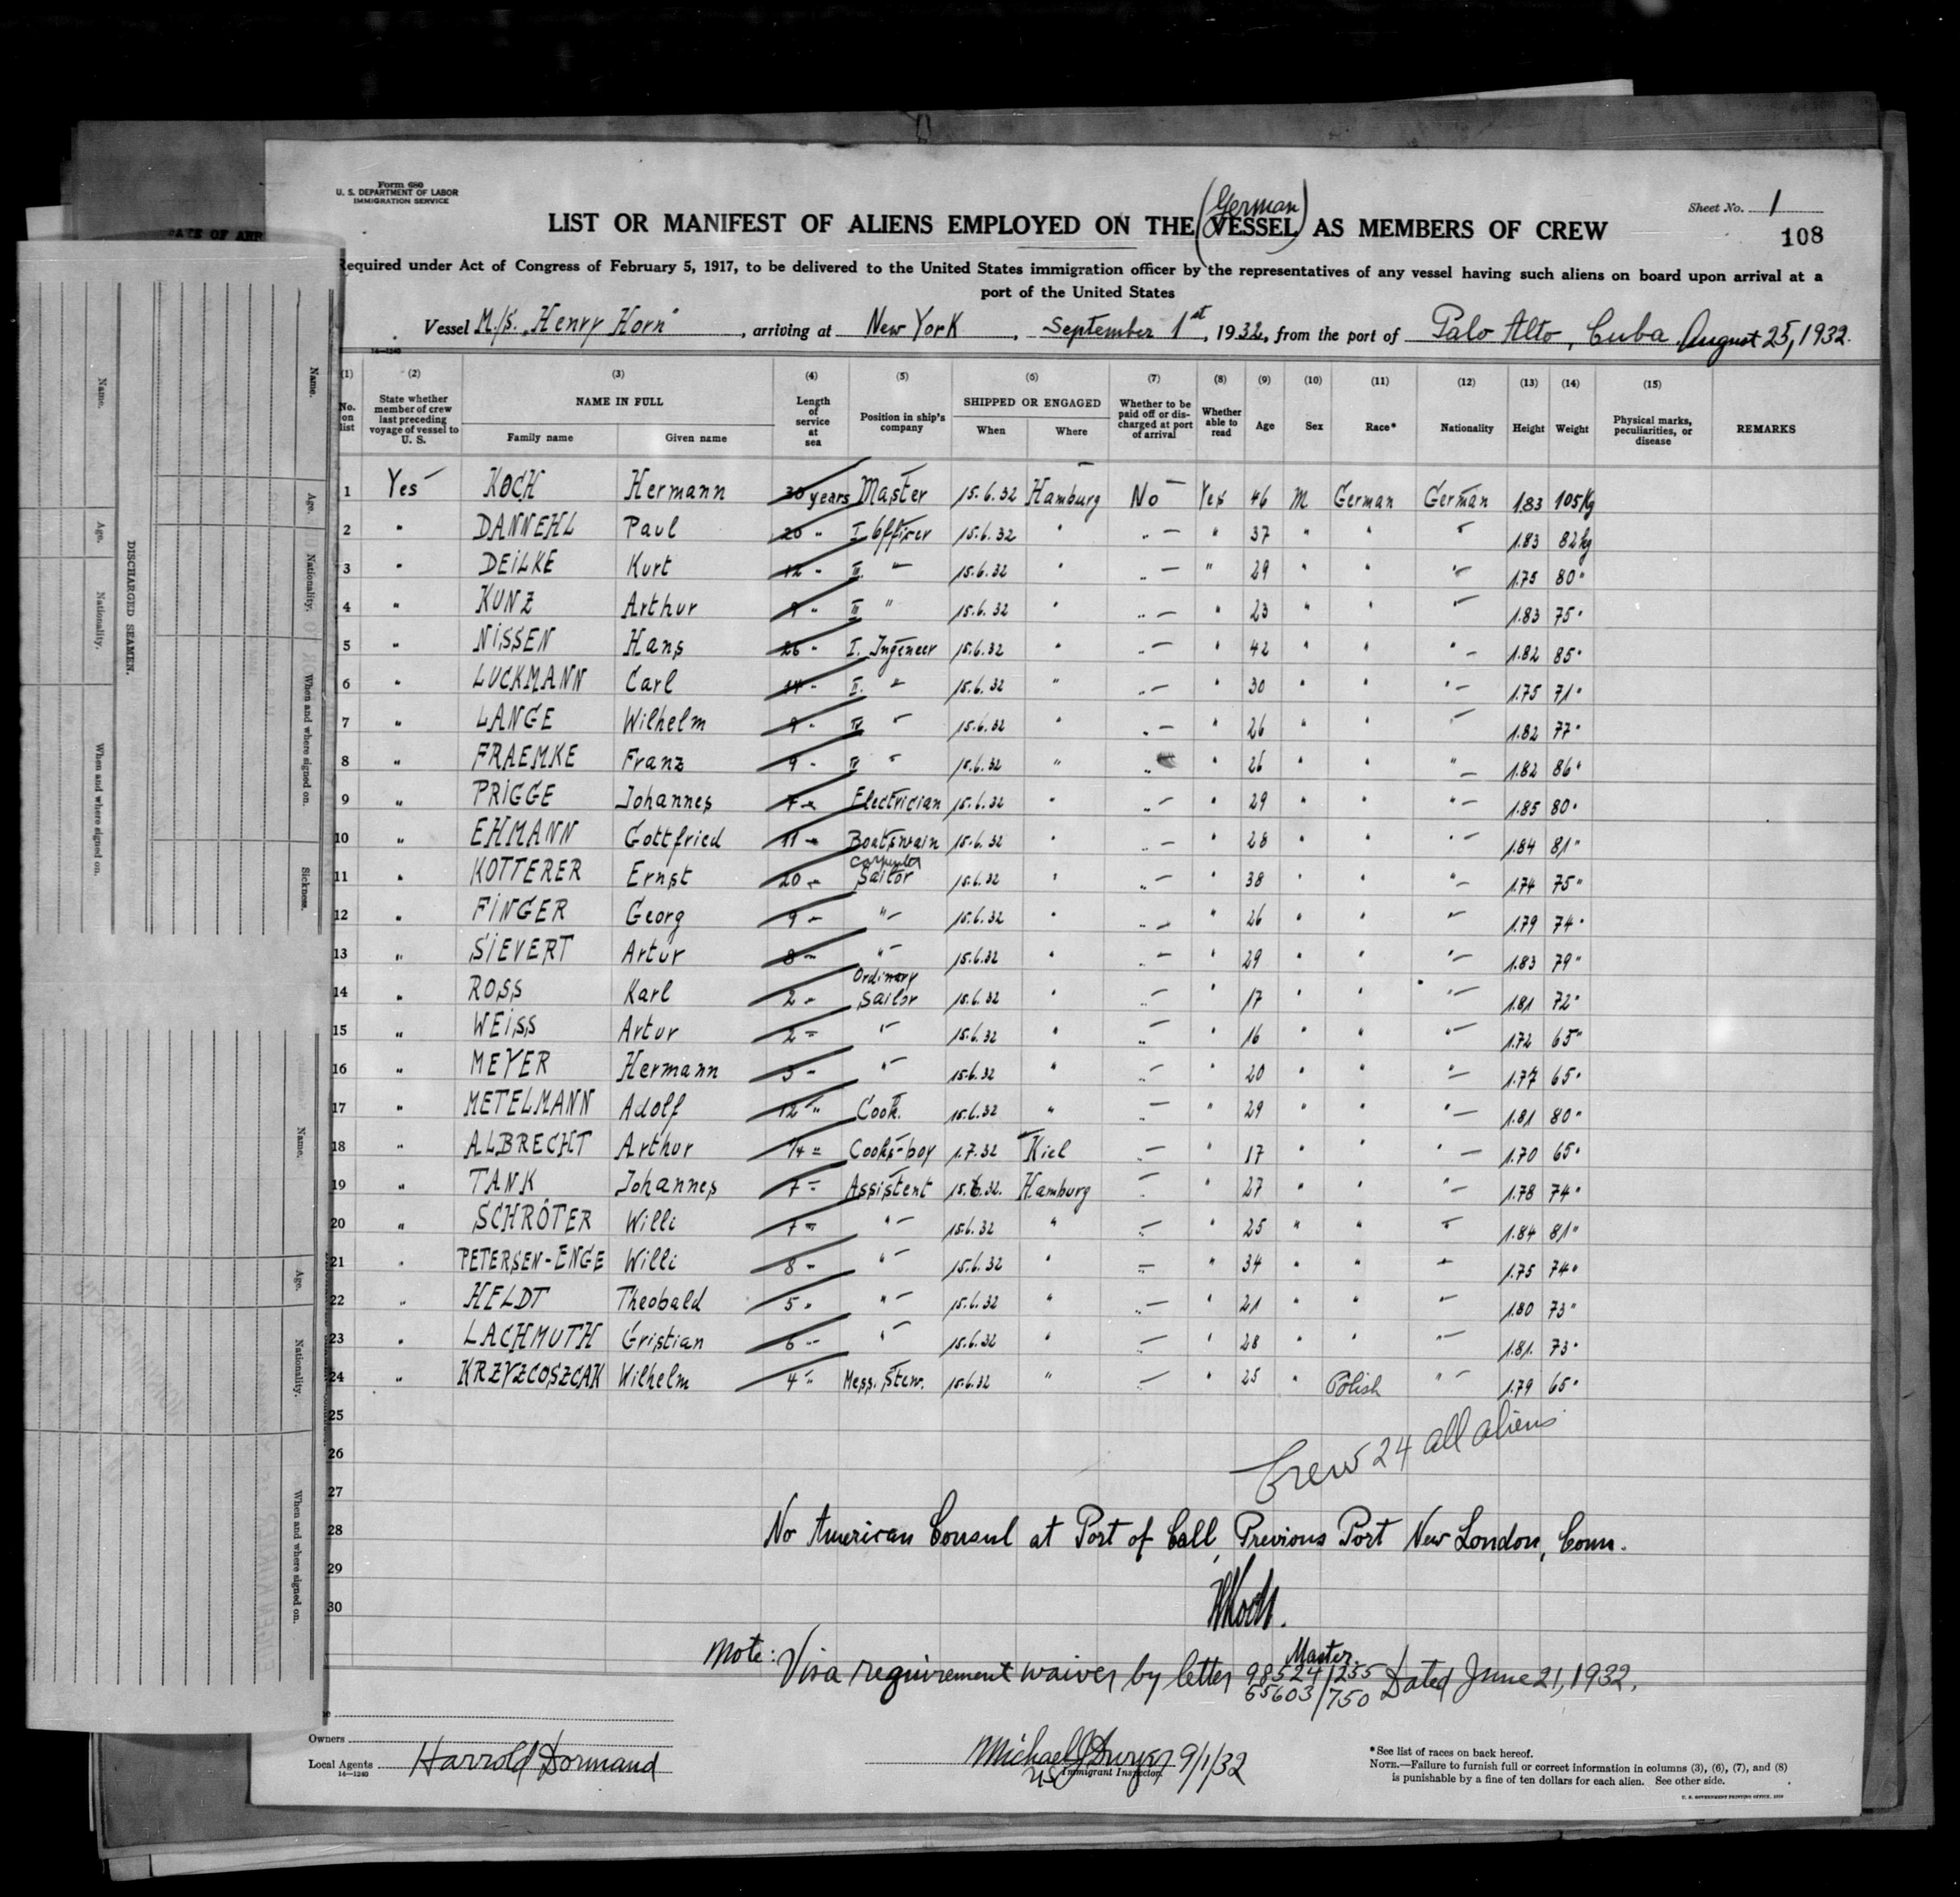 Form 680
U. S. DEPARTMENT OF LABOR
IMMIGRATION SERVICE
Sheet No. 1
108
(German)
LIST OR MANIFEST OF ALIENS EMPLOYED ON THE VESSEL AS MEMBERS OF CREW
Required under Act of Congress of February 5, 1917, to be delivered to the United States immigration officer by the representatives of any vessel having such aliens on board upon arrival at a
port of the United States
Vessel M/S. „Henry Horn", arriving at New York, September 1st, 1932, from the port of Palo Alto, Cuba August 25, 1932.
14—1240
(1) (2) (3) (4) (5) (6) (7) (8) (9) (10) (11) (12) (13) (14) (15)
No. on list | State whether member of crew last preceding voyage of vessel to U. S. | NAME IN FULL Family name Given name | Length of service at sea | Position in ship's company | SHIPPED OR ENGAGED When Where | Whether to be paid off or discharged at port of arrival | Whether able to read | Age | Sex | Race* | Nationality | Height | Weight | Physical marks, peculiarities, or disease | REMARKS
1 Yes KOCH Hermann 30 years Master 15.6.32 Hamburg No Yes 46 M German German 1.83 105Kg
2 " DANNEHL Paul 20 " I Officer 15.6.32 " " " 37 " " " 1.83 82kg
3 " DEILKE Kurt 12 " II. " 15.6.32 " " " 29 " " " 1.75 80"
4 " KUNZ Arthur 9 " III " 15.6.32 " " " 23 " " " 1.83 75"
5 " NISSEN Hans 26 " I. Ingeneer 15.6.32 " " " 42 " " " 1.82 85"
6 " LUCKMANN Carl 14 " II. " 15.6.32 " " " 30 " " " 1.75 71"
7 " LANGE Wilhelm 9 " " 15.6.32 " " " 26 " " " 1.82 77"
8 " FRAEMKE Franz 9 " " 15.6.32 " " " 26 " " " 1.82 86"
9 " PRIGGE Johannes 7 " Electrician 15.6.32 " " " 29 " " " 1.85 80"
10 " EHMANN Gottfried 11 " Boatswain 15.6.32 " " " 28 " " " 1.84 81"
11 " KOTTERER Ernst 20 " Carpenter Sailor 15.6.32 " " " 38 " " " 1.74 75"
12 " FINGER Georg 9 " " 15.6.32 " " " 26 " " " 1.79 74"
13 " SIEVERT Artur 8 " " 15.6.32 " " " 29 " " " 1.83 79"
14 " ROSS Karl 2 " Ordinary Sailor 15.6.32 " " " 17 " " " 1.81 72"
15 " WEISS Artur 2 " " 15.6.32 " " " 16 " " " 1.72 65"
16 " MEYER Hermann 3 " " 15.6.32 " " " 20 " " " 1.77 65"
17 " METELMANN Adolf 12 " Cook. 15.6.32 " " " 29 " " " 1.81 80"
18 " ALBRECHT Arthur 1/4 " Cooks-boy 1.7.32 Kiel " " 17 " " " 1.70 65"
19 " TANK Johannes 7 " Assistent 15.6.32. Hamburg " " 27 " " " 1.78 74"
20 " SCHRÖTER Willi 7 " " 15.6.32 " " " 25 " " " 1.84 81"
21 " PETERSEN-ENGE Willi 8 " " 15.6.32 " " " 34 " " " 1.75 74"
22 " HELDT Theobald 5 " " 15.6.32 " " " 21 " " " 1.80 73"
23 " LACHMUTH Gristian 6 " " 15.6.32 " " " 28 " " " 1.81. 73"
24 " KRZYZCOSZCAK Wilhelm 4 " Mess. Stew. 15.6.32 " " " 25 " Polish " 1.79 65"
25
26
Crew 24 all aliens
27
28
No American Consul at Port of Call, Previous Port New London, Conn.
29
30
HKoch.
Master.
Note: Visa requirement waiver by letter 98524/255 Dated June 21, 1932.
55603/750
Owners
Local Agents Harrold Dormand
14—1240
Michael J Dwyer 9/1/32
US Immigrant Inspector.
*See list of races on back hereof.
NOTE.—Failure to furnish full or correct information in columns (3), (6), (7), and (8)
is punishable by a fine of ten dollars for each alien. See other side.
U. S. GOVERNMENT PRINTING OFFICE
DISCHARGED SEAMEN.
Name.
Age.
Nationality.
When and where signed on.
Name.
Age.
Nationality.
When and where signed on.
Sickness.
Name.
Age.
Nationality.
When and where signed on.